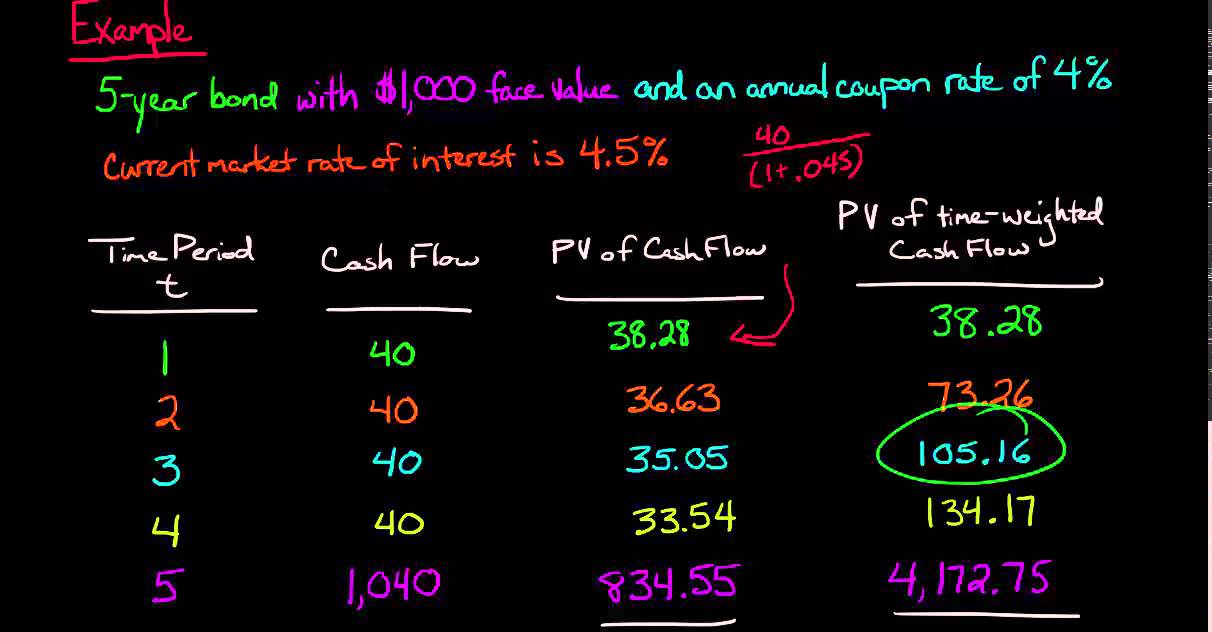 Example
5-year bond with $1,000 face value and an annual coupon rate of 4%
Current market rate of interest is 4.5%
40
(1+.045)
Time Period
t
Cash Flow
PV of Cash Flow
PV of time-weighted
Cash Flow
1 40 38.28 38.28
2 40 36.63 73.26
3 40 35.05 105.16
4 40 33.54 134.17
5 1,040 834.55 4,172.75